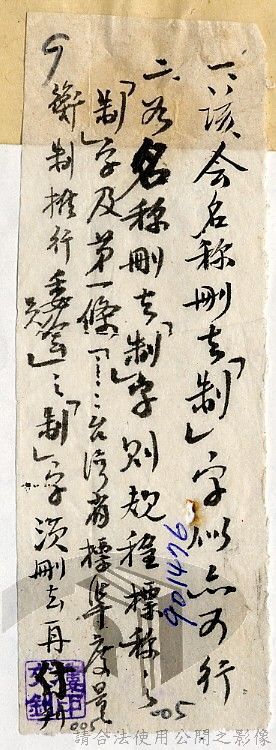 一、該会名称刪去「制」字似亦可行
二、如名称刪去「制」字則規程標称之
「制」字及第一條「……台湾省標準度量
衡制推行委員会」之「制」字須刪去再付
9041176
005
005
請合法使用公開之影像